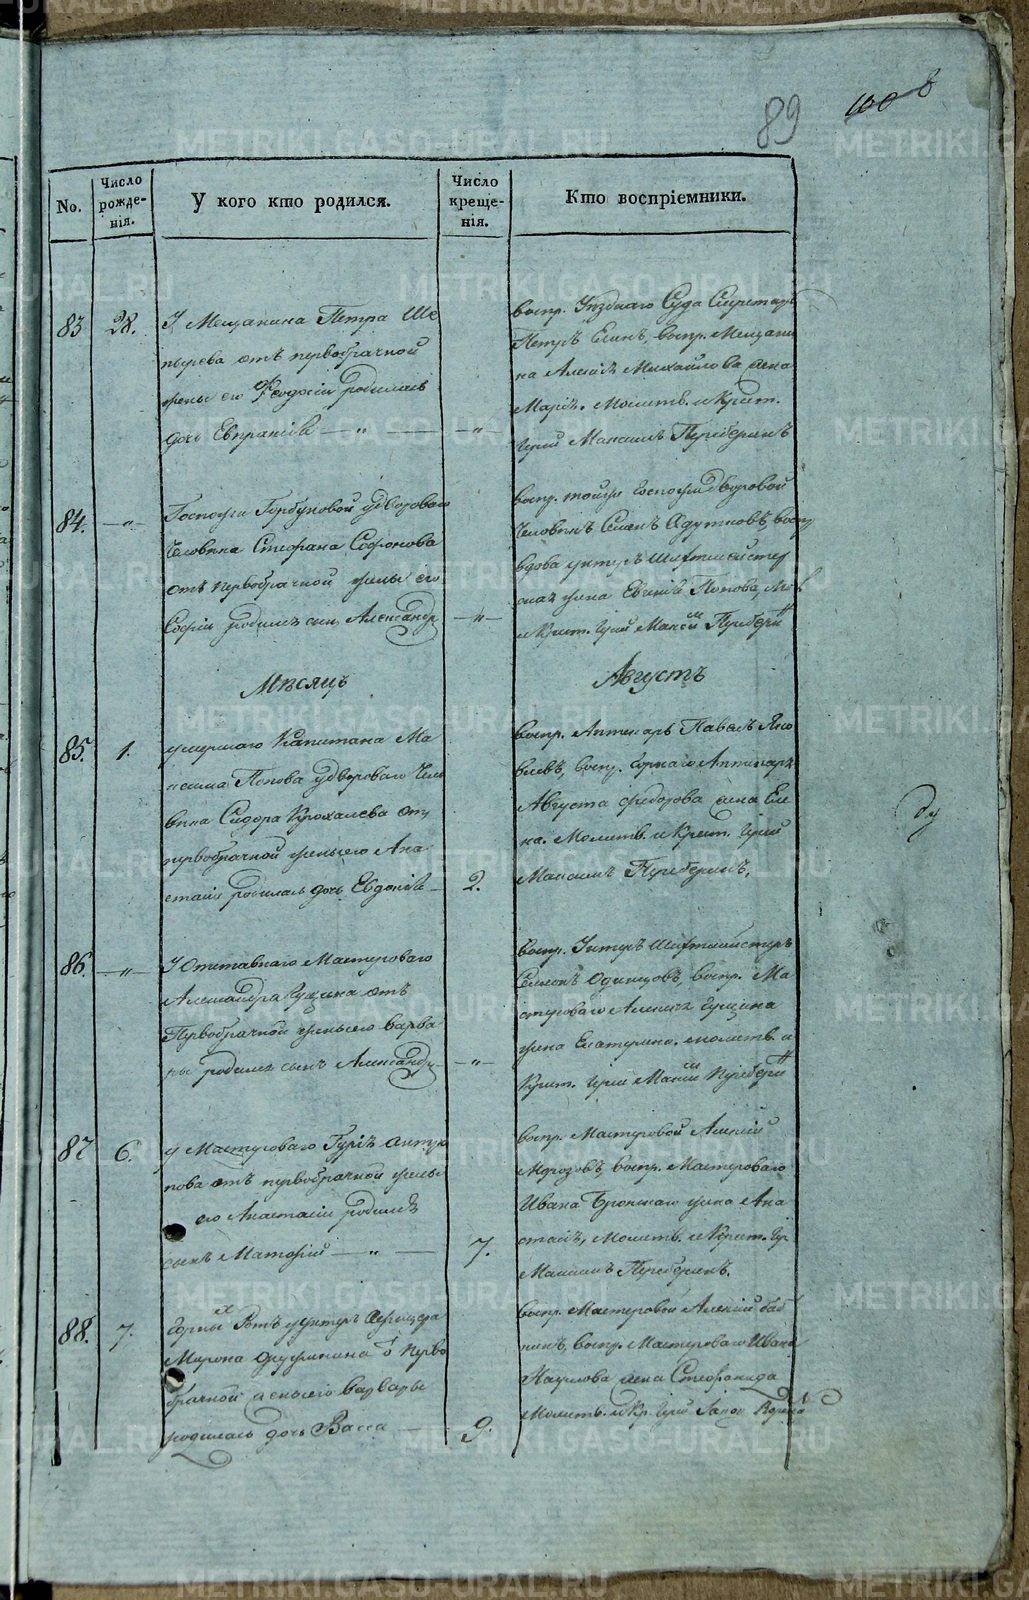 METRIKI.GASO-URAL.RU
89
No.
Число рожде-нія.
У кого кто родился.
Число креще-нія.
Кто воспріемники.
83
28.
У Мещанина Петра Ше
пырева отъ первобрачной
жены его Ѳеодосіи родилась
дочь Евпраксія — „ —
„
воспр. Уезднаго Суда Секретарь
Петръ Елинъ, воспр. Мещани
на Алексѣя Михайлова жена
Марія. Молитв. и Крест.
Іерей Максимъ
84.
„
Госпожи Горбуновой у двороваго
человѣка Стефана Софонова
отъ первобрачной жены его
Софіи родился сынъ Александръ
„
воспр. тойже Госпожи дворовой
человѣкъ воспр
вдова унтеръ Шихтмейстер
ская жена Евгенія Попова, мол
и Крест. Іерей Максим
Мѣсяцъ
Августъ
85.
1.
умершаго Капитана Ма
ксима Попова у двороваго чело
вѣка Сидора Крохалева отъ
первобрачной жены его Ана
стасіи родилась дочь Евдокія
2.
воспр. Аптекарь Павелъ Яко
влевъ, воспр. Горнаго Аптекаря
Августа Федорова жена Еле
на. Молитв. и Крест. Іерей
Максимъ
86.
„
У Отставнаго Мастероваго
Александра Гущина отъ
Первобрачной жены его Варва
ры родился сынъ Александръ
„
воспр. Унтеръ Шихтмейстеръ
Семенъ Одинцовъ, воспр. Ма
стероваго Алексѣя Гущина
жена Екатерина. молитв. и
Крест. Іерей Максим
87
6.
у Мастероваго Гурія Антро
пова отъ первобрачной жены
его Анастасіи родился
сынъ Матфій — „ —
7.
воспр. Мастеровой Алексій
Морозовъ, воспр. Мастероваго
Ивана жена Ана
стасія, Молитв. и Крест. Іер
Максимъ
88.
7.
Горныхъ Ротъ у унтеръ Афицера
Мирона отъ перво
брачной жены его Варвары
родилась дочь Васса
9.
воспр. Мастеровой Алексій Баб
кинъ, воспр. Мастероваго Ивана
жена Стефанида
Молитв. и Кр. Іерей